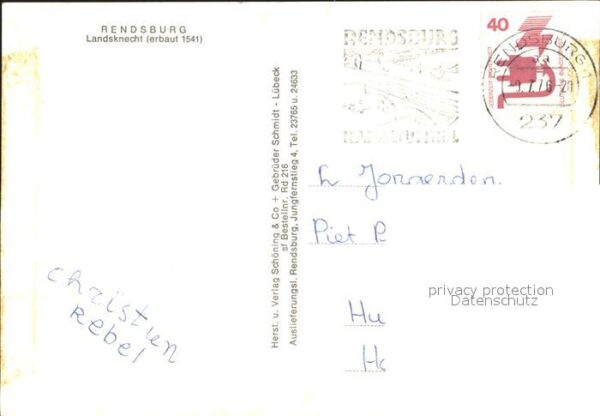 RENDSBURG
Landsknecht (erbaut 1541)
RENDSBURG
40
RENDSBURG
237
Herst. u. Verlag Schöning & Co + Gebrüder Schmidt - Lübeck
sf Bestellnr. Rd 216
Auslieferungsl. Rendsburg, Jungfernstieg 4, Tel. 23765 u. 24633
Piet R
Hu
privacy protection
Datenschutz
christien
Rebel